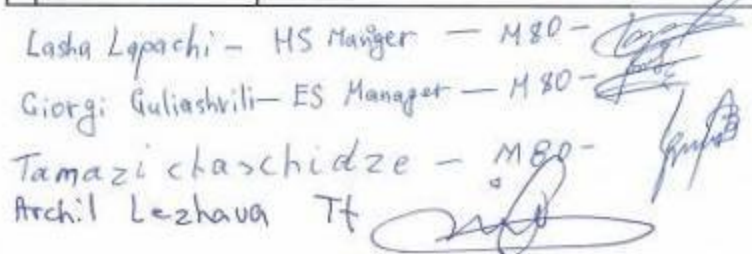 Lasha Lapachi - HS Manger - M80 -
Giorgi Guliashvili - ES Manager - M80 -
Tamazi chaschidze - M80 -
Archil Lezhava Tt